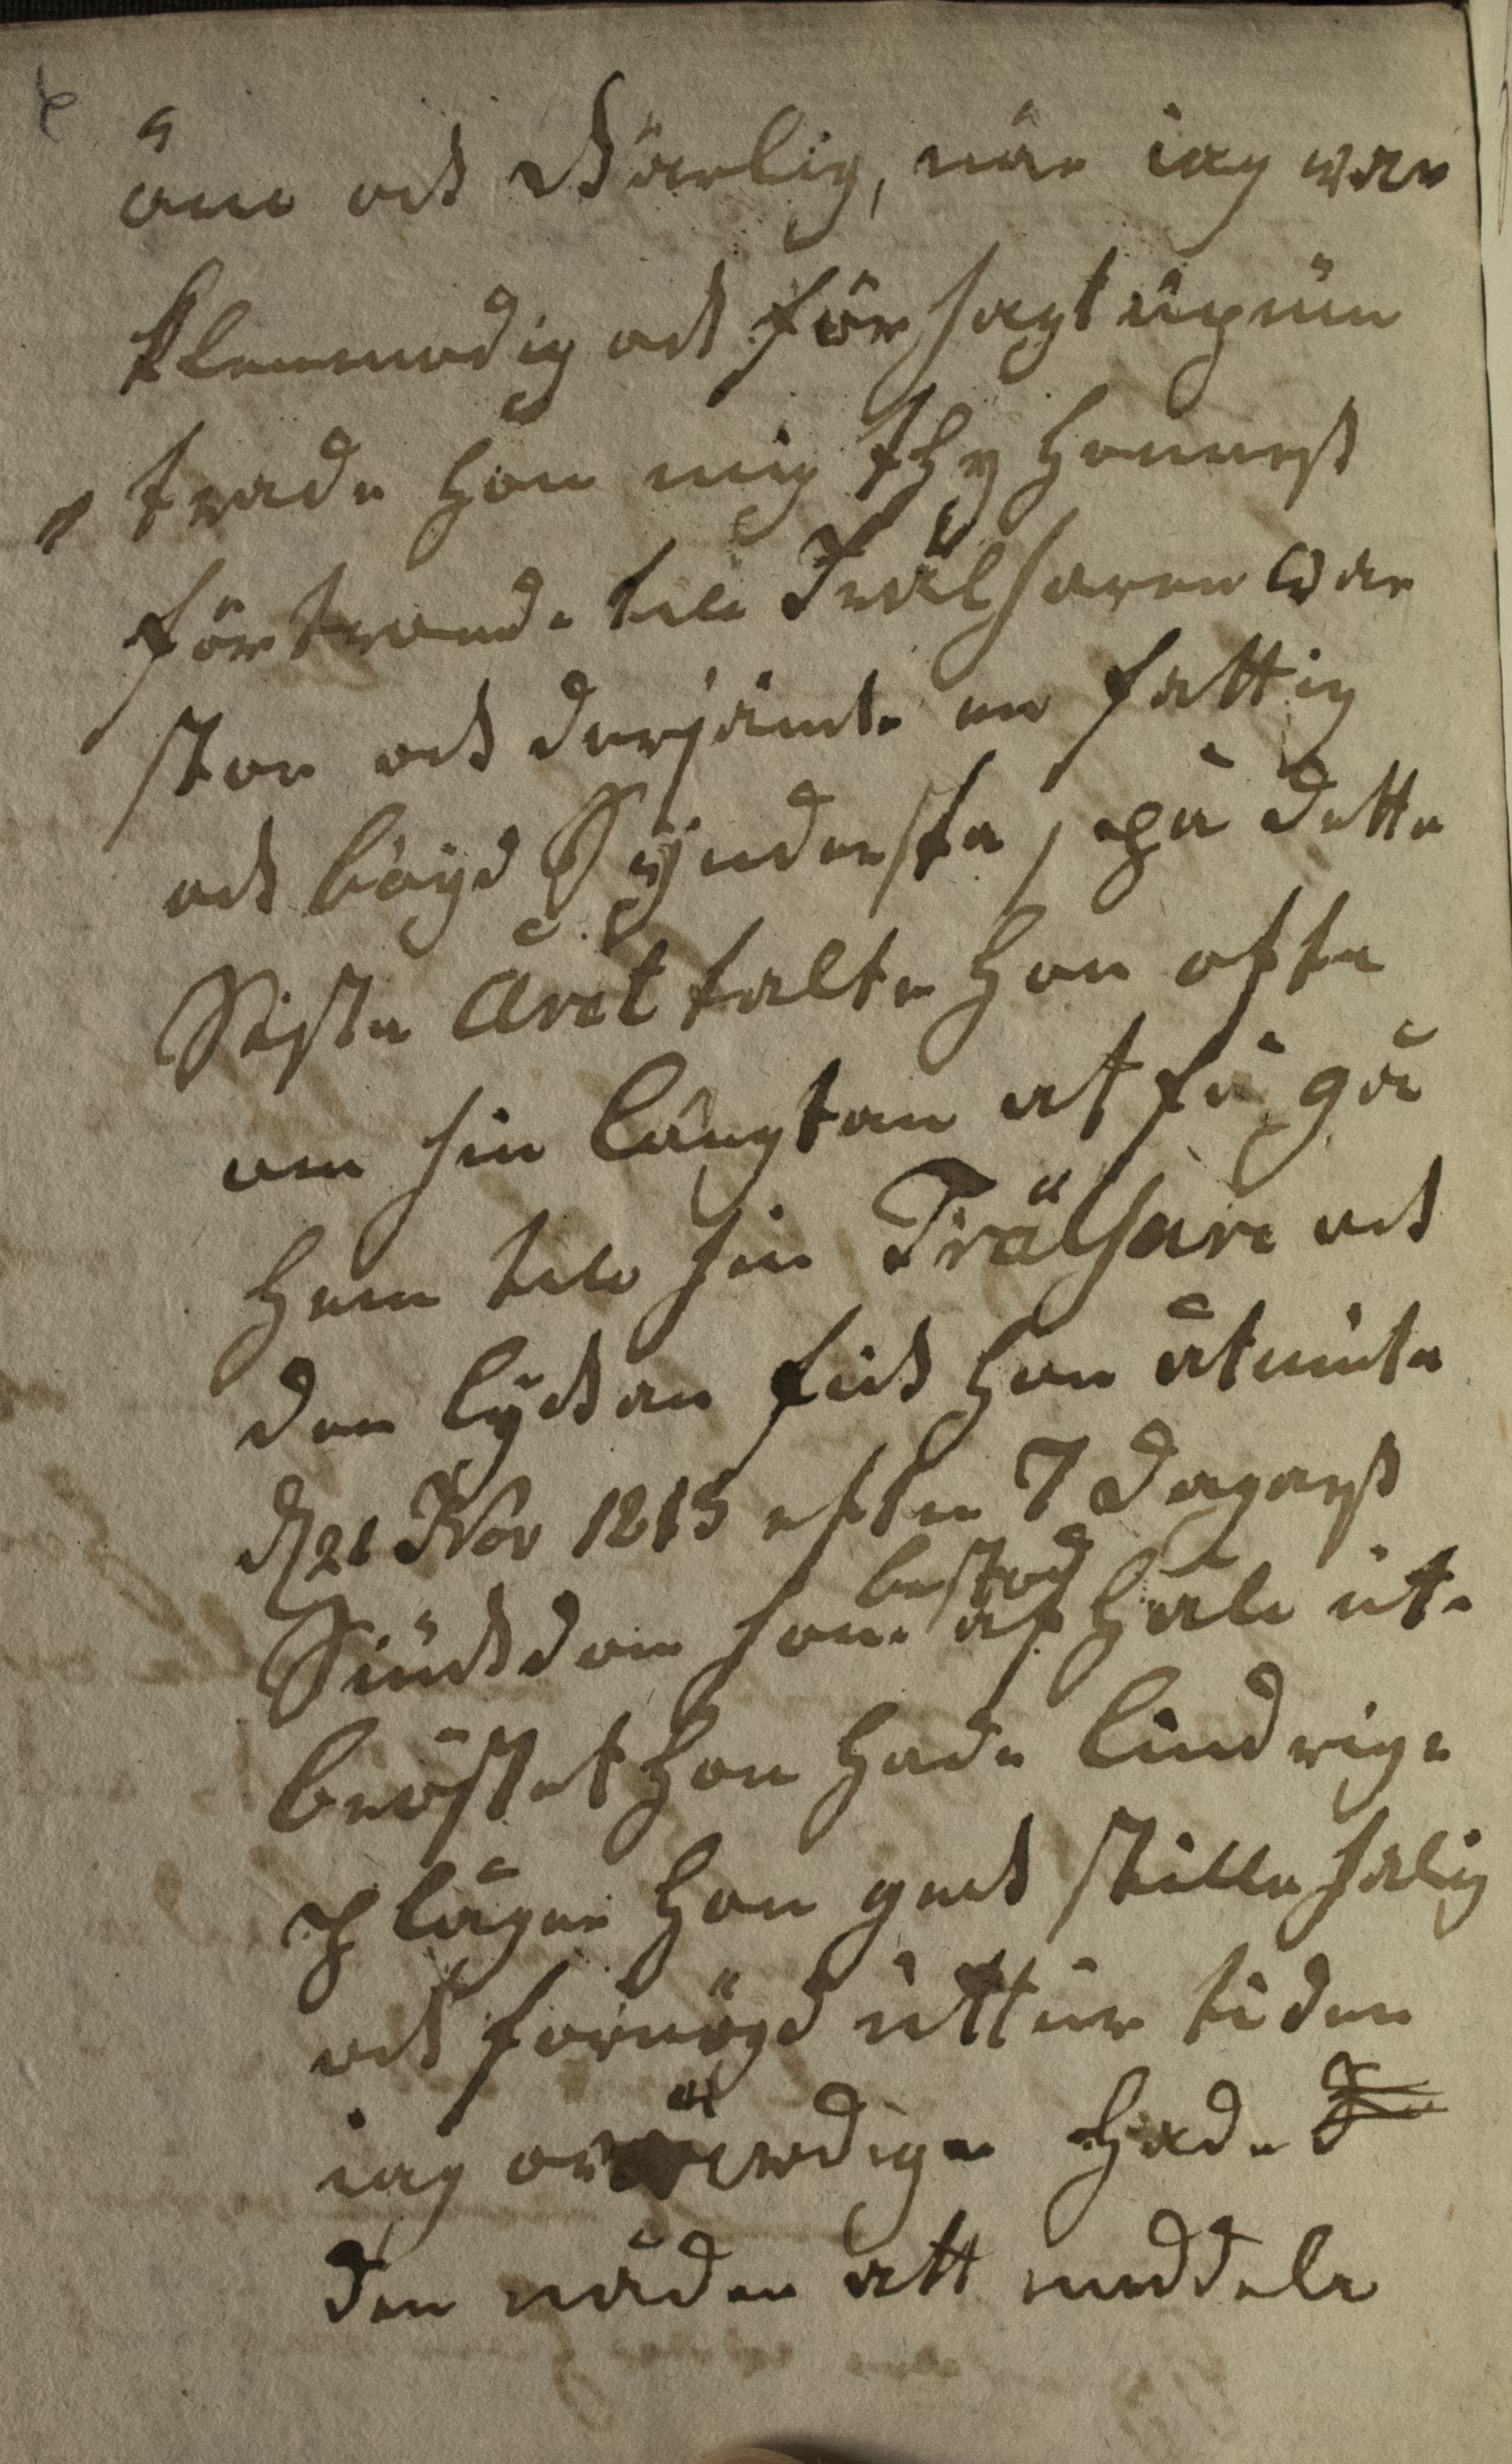 öm och Kärlig, när iag war
klenmodig och försagt upmun
trade hon mig thy hennes
förtroende till Frälsaren war
stor och derjämte en fattig
och böyd Synderska, på detta
Sista Året talte hon ofta
om sin längtan at få gå
hem till sin Frälsare och
den lyckan fick hon åtniuta
d 21 Nov 1813 efter 7 dagars
Siuckdom som bestod af håll ut-
bröstet hon hade lindriga
plågor hon geck stilla salig
och förnögd utt ur tiden
iag owärdige hade
den nåden att meddela